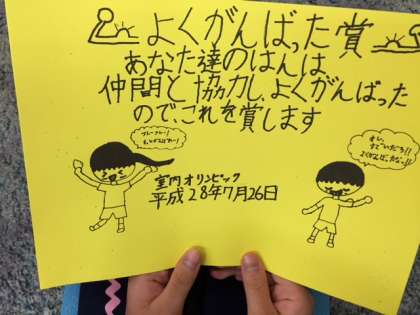 よくがんばった賞
あなた達のはんは
仲間と協力し、よくがんばった
ので、これを賞します
フレーフレー!
室内オリンピック
平成28年7月26日